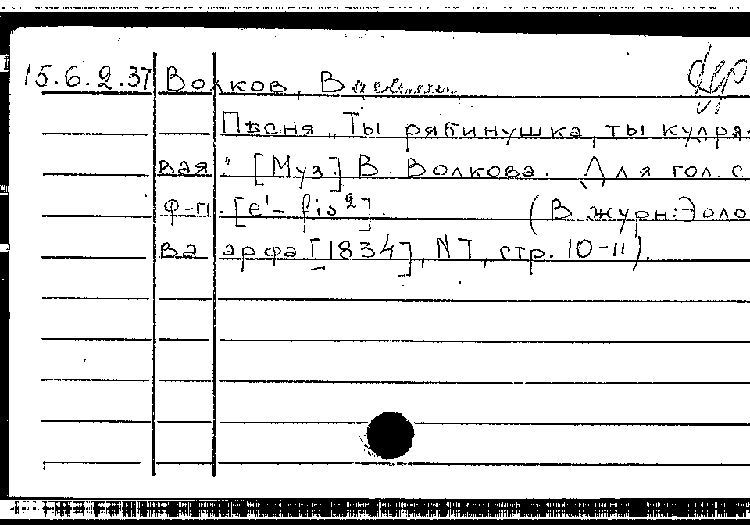 15.6.2.37 Волков, В
Пѣсня „Ты рябинушка, ты кудря-
вая". [Муз.] В. Волкова. Для гол. с
ф-п. [e¹- fis²]. (В журн: Эоло
ва арфа [1834], N I, стр. 10-11).